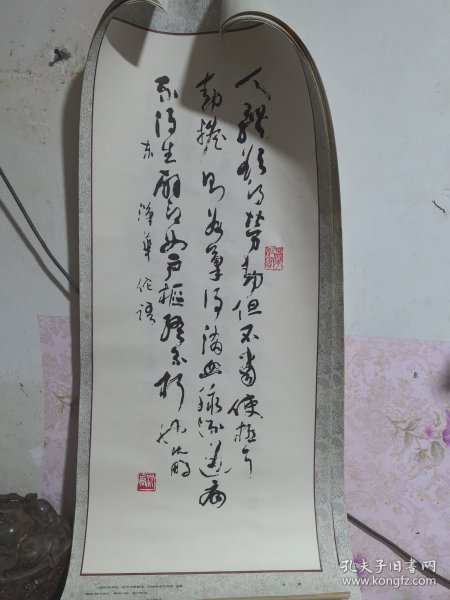 人體欲得勞動但不當使極耳
動搖則谷氣得消血脉流通病
不得生譬如戶樞終不朽 林鵬
东漢華佗語
孔夫子旧书网